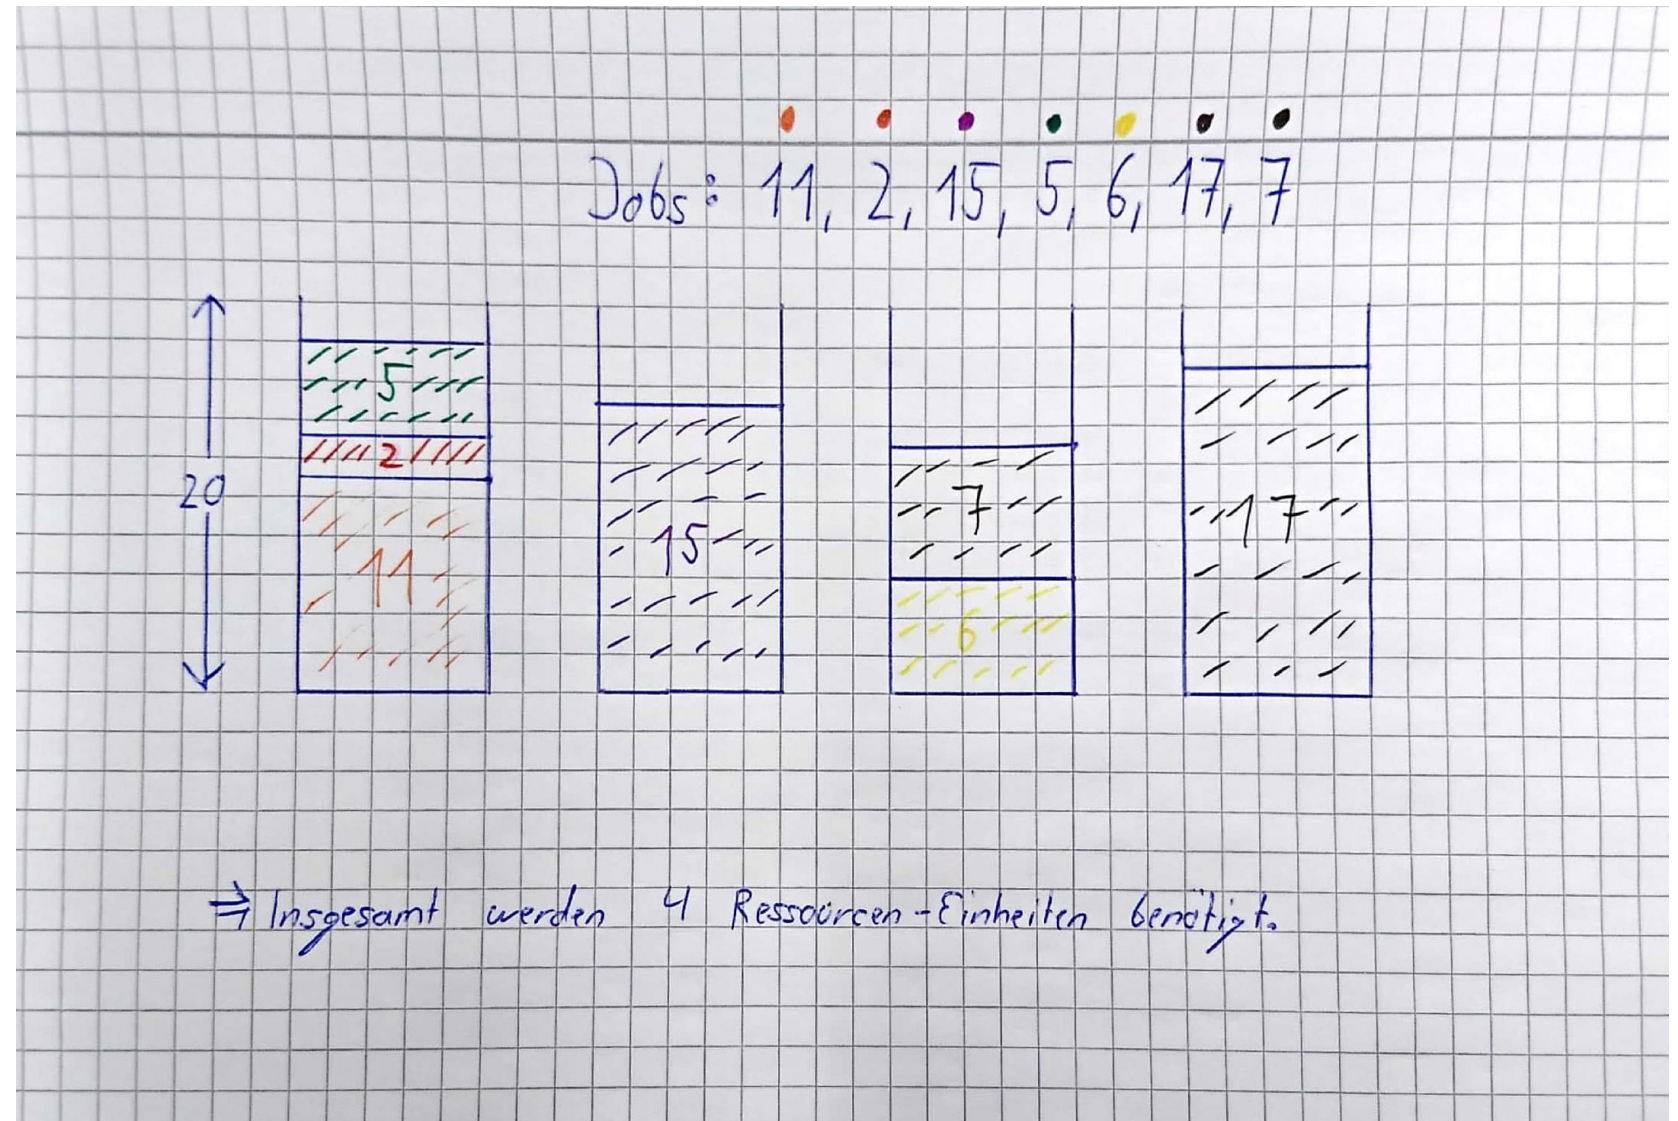 Jobs: 11, 2, 15, 5, 6, 17, 7
20
5
2
11
15
7
6
17
⇒ Insgesamt werden 4 Ressourcen-Einheiten benötigt.